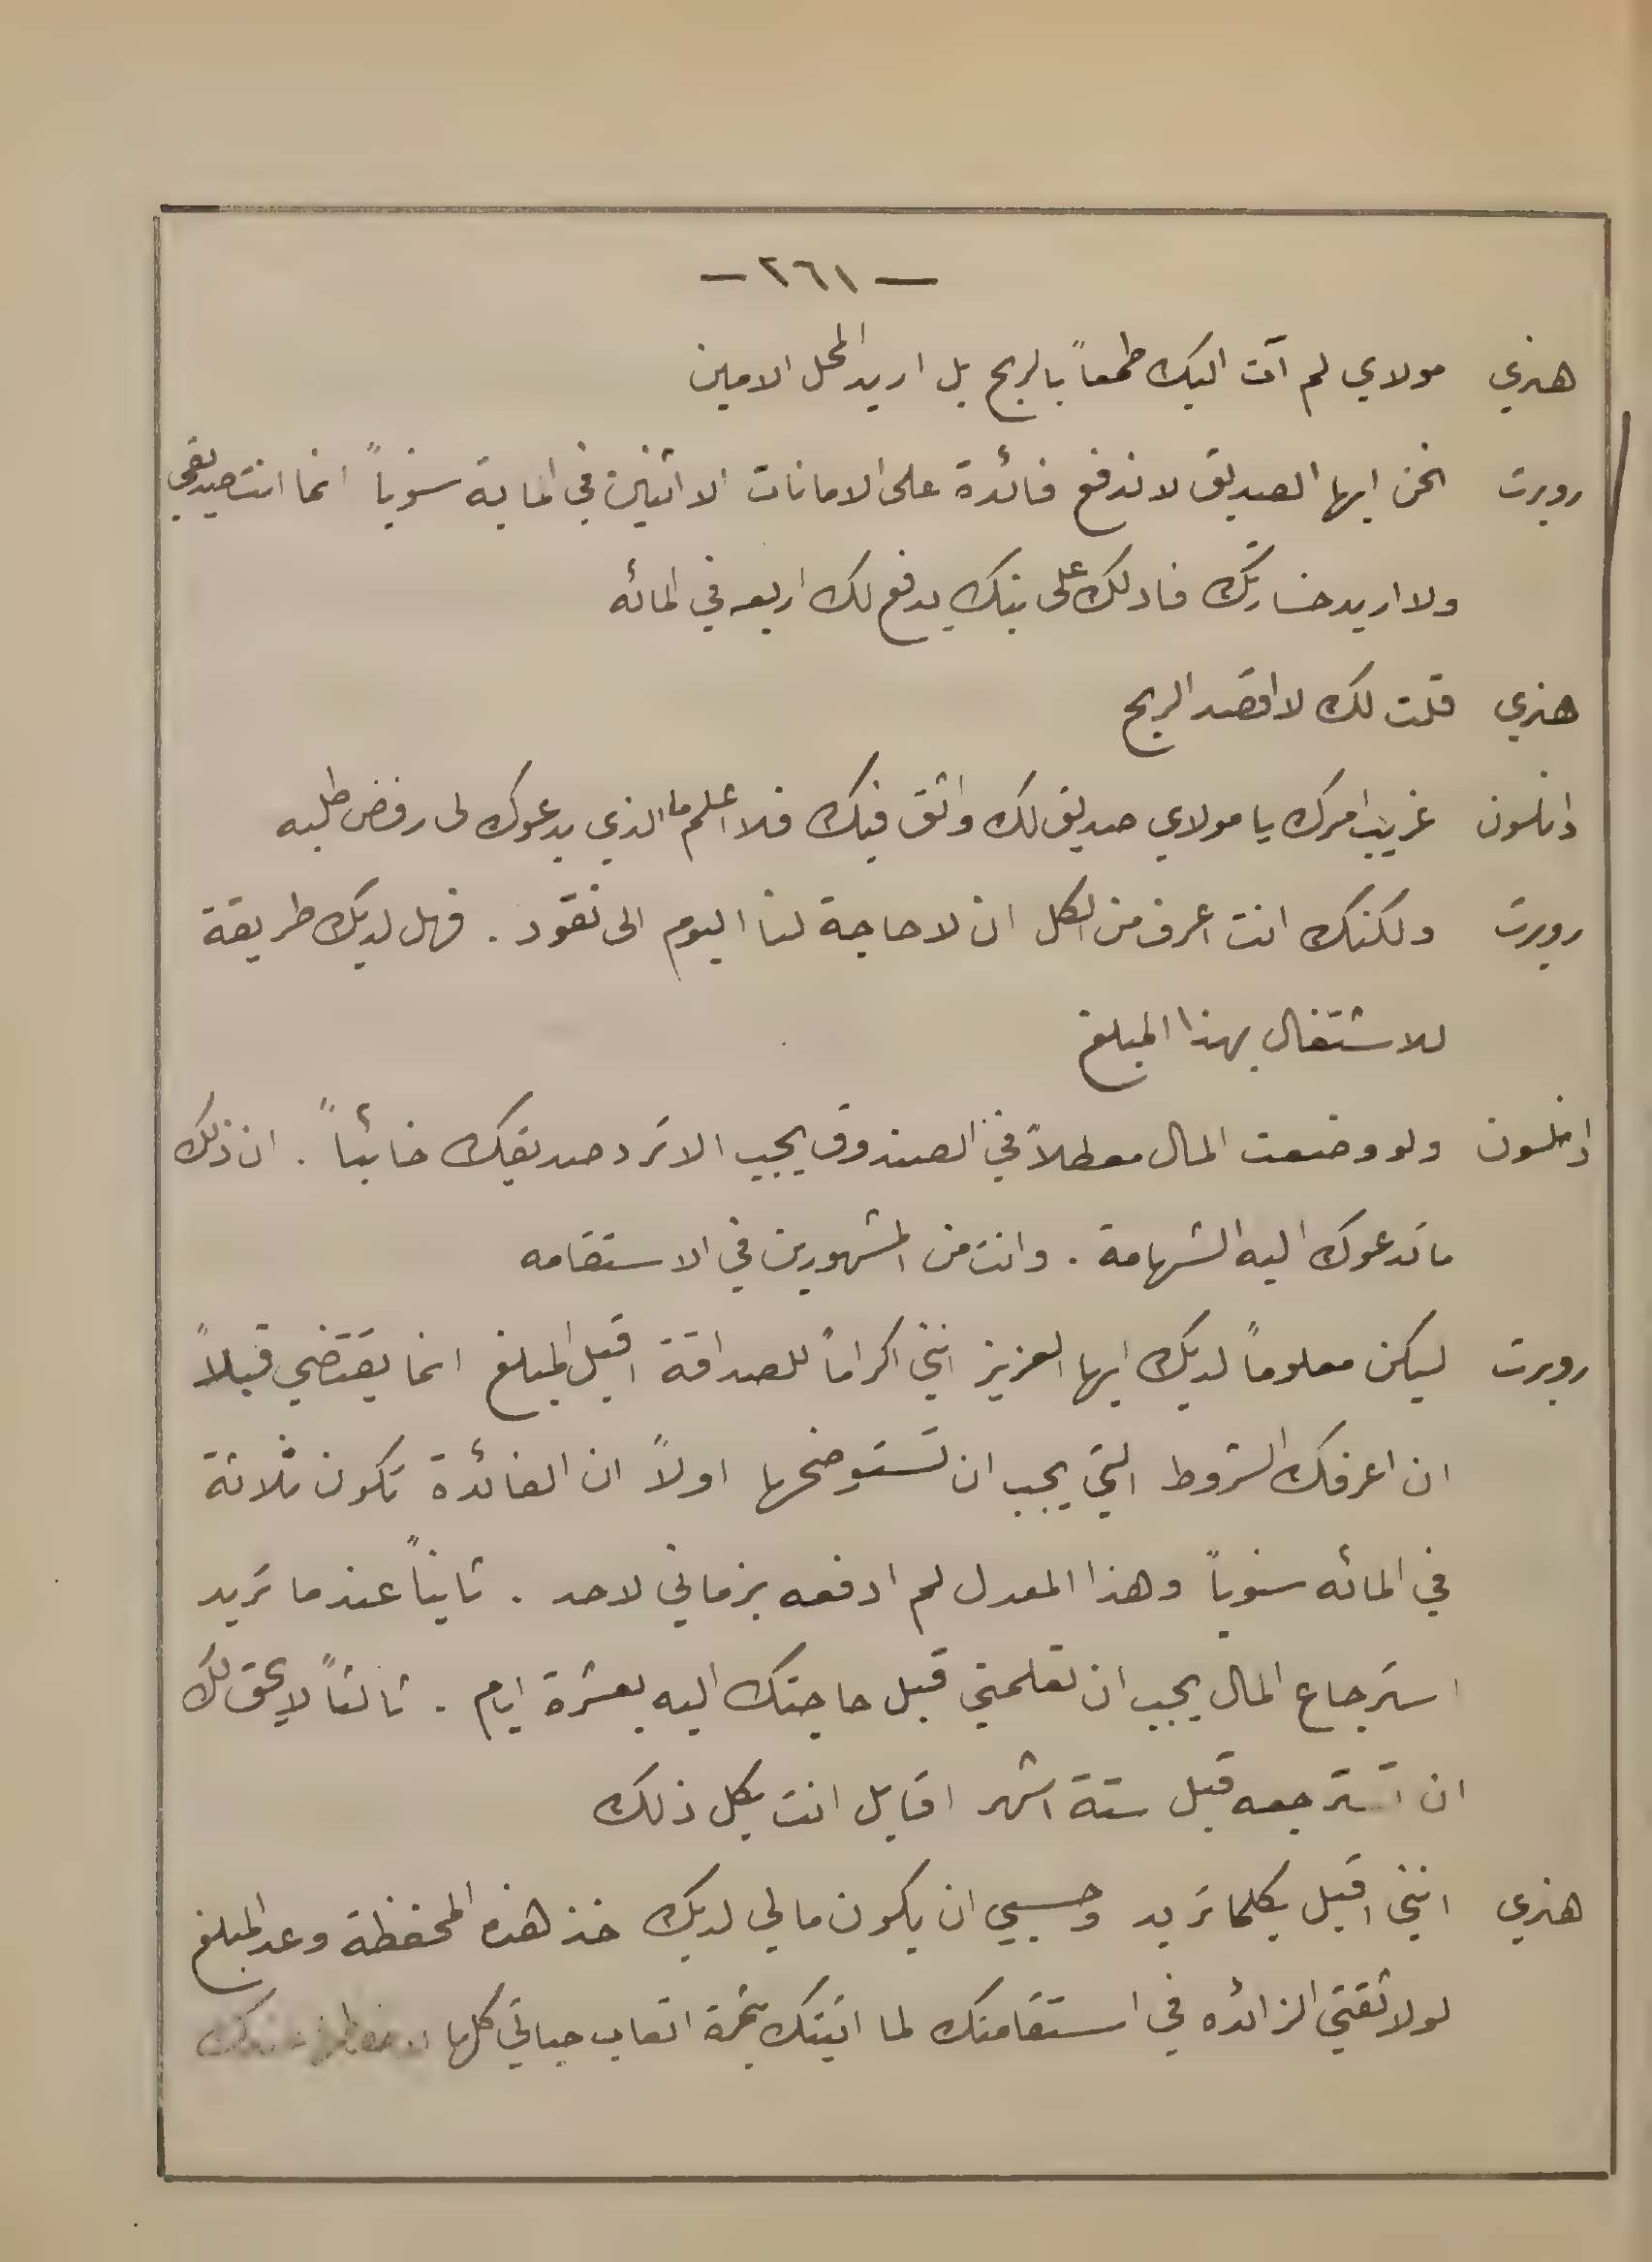 — ٢٦١ —
هنري مولاي لم آت اليك طمعاً بالربح بل اريد المحل الامين
روبرت نحن ايها الصديق لا ندفع فائدة على الامانات الا اثنين في الماية سنوياً انما انت صديقي
ولا اريد خسارتك فادلك على بنك يدفع لك اربعه في المائه
هنري قلت لك لا اقصد الربح
غريب امرك يا مولاي صديق لك واثق فيك فلا اعلم ما الذي يدعوك لى رفض طلبه
روبرت ولكنك انت اعرف من الكل ان لا حاجة لنا اليوم الى نقود . فهل لديك طريقة
للاشتغال بهذا المبلغ
ولو وضعت المال معطلاً في الصندوق يجب الا ترد صديقك خائباً . ان ذلك
ما تدعوك اليه الشهامة . وانت من المشهورين في الاستقامه
روبرت ليكن معلوماً لديك ايها العزيز انني اكراماً للصداقة اقبل المبلغ انما يقتضي قبلاً
ان اعرفك الشروط التي يجب ان تستوضحها اولاً ان الفائدة تكون ثلاثة
في المائه سنوياً وهذا المعدل لم ادفعه بزماني لاحد . ثانياً عندما تريد
استرجاع المال يجب ان تعلمني قبل حاجتك اليه بعشرة ايام . ثالثاً لا يحق لك
ان تسترجعه قبل ستة اشهر اقابل انت بكل ذلك
هنري انني اقبل بكلما تريد وحسبي ان يكون مالي لديك خذ هذه المحفظة وعد المبلغ
لولا ثقتي الزائده في استقامتك لما اتيتك بثمرة اتعاب حياتي كلها